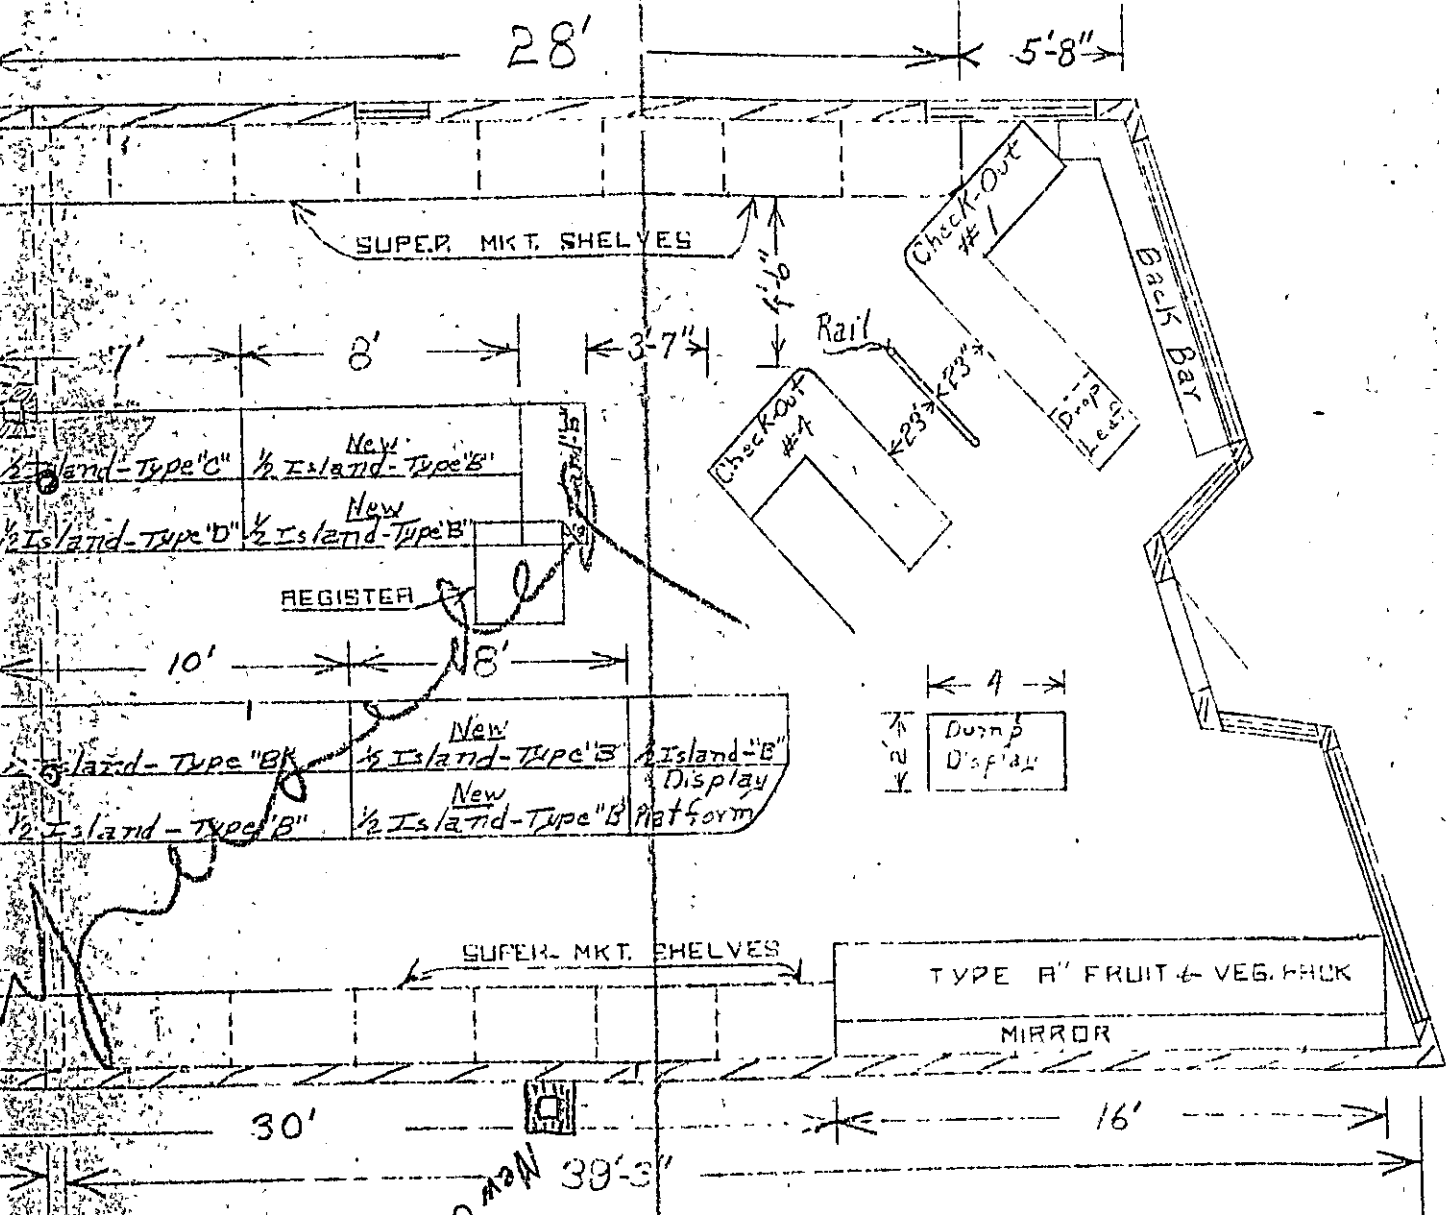 28'
5'-8"
Check-Out
#1
SUPER. MKT. SHELVES
Back Bar
Rail
7'
8'
3'-7"
23"
23"
Drop
Leaf
Check-Out
½ Island-Type "C"
New
½ Island-Type "B"
½ Island-Type "D"
New
½ Island-Type "B"
REGISTER
10'
8'
4
2'
Dump
Display
Island-Type "B"
New
½ Island-Type "B"
½ Island-"E"
Display
Platform
½ Island-Type "B"
New
½ Island-Type "B"
SUPER- MKT. SHELVES
TYPE A" FRUIT & VEG. RACK
MIRROR
30'
16'
39'-3"
New